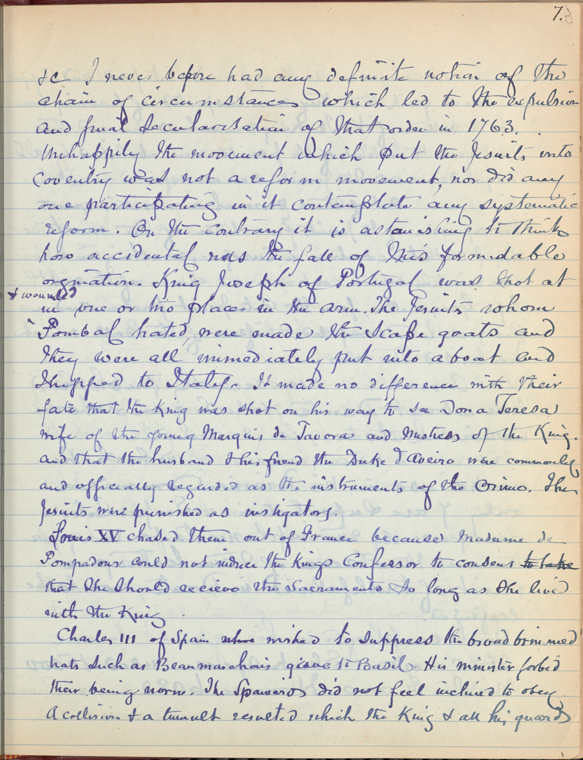 73
&c I never before had any definite notion of the
chain of circumstances which led to the expulsion
and final secularisation of that order in 1763.
Unhappily the movement which put the Jesuits into
Coventry was not a reform movement, nor did any
one participating in it contemplate any systematic
reform. On the contrary it is astonishing to think
how accidental was the fall of this formidable
orgnation. King Joseph of Portugal was shot at
& wounded
in one or two places in the arm. The Jesuits whom
Pombal hated, were made the scape goats and
they were all immediately put into a boat and
shipped to Italy. It made no difference with their
fate that the King was shot on his way to see Dona Teresa
wife of the young Marquis de Tavora and Mistress of the King.
and that the husband & his friend the Duke d'Aveiro were commonly
and officially regarded as the instruments of the crime. The
Jesuits were punished as instigators.
Louis XV chased them out of France because Madame de
Pompadour could not induce the Kings Confessor to consent to take
that she should recieve the Sacraments so long as she lived
with the King.
Charles III of Spain when wished to suppress the broad brimmed
hats such as Beaumarchais gives to Basil. His minister forbid
their being worn. The Spaniards did not feel inclined to obey
A collision & a tumult resulted which the King & all his guards